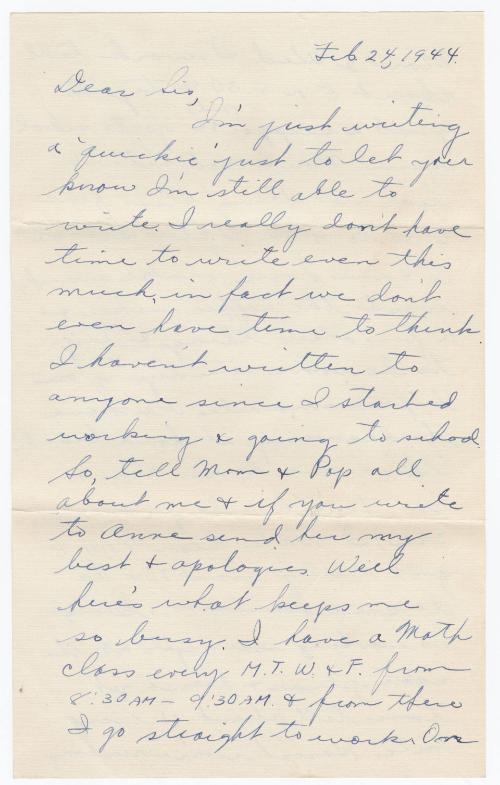 Feb. 24, 1944.
Dear Sis,
I'm just writing
a "quickie" just to let your
know I'm still able to
write. I really don't have
time to write even this
much, in fact we don't
even have time to think
I haven't written to
anyone since I started
working & going to school.
So, tell Mom & Pop all
about me & if you write
to Anne send her my
best & apologies. Well
here's what keeps me
so busy. I have a Math
class every M. T. W. & F. from
8:30 AM - 9:30 AM. & from there
I go straight to work. On